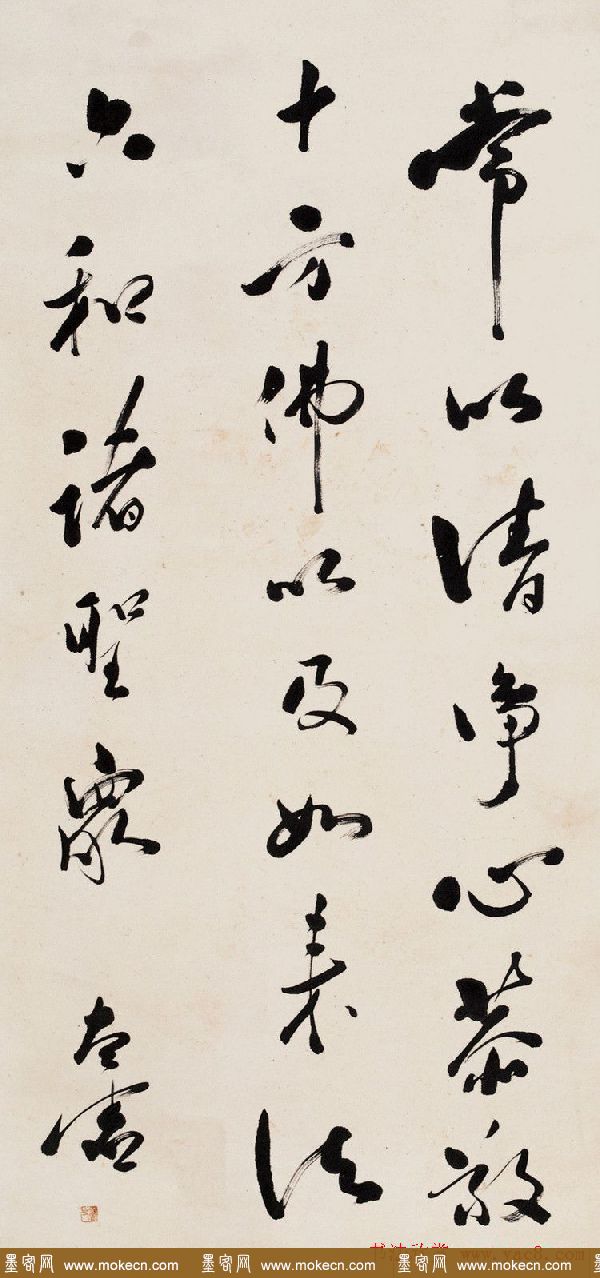 常以清净心恭敬
十方佛以及如来法
六和诸圣众
太虚
书法欣赏 www.yac8.com
墨客网 www.mokecn.com 墨客网 www.mokecn.com 墨客网 www.mokecn.com 墨客网 www.mokecn.com